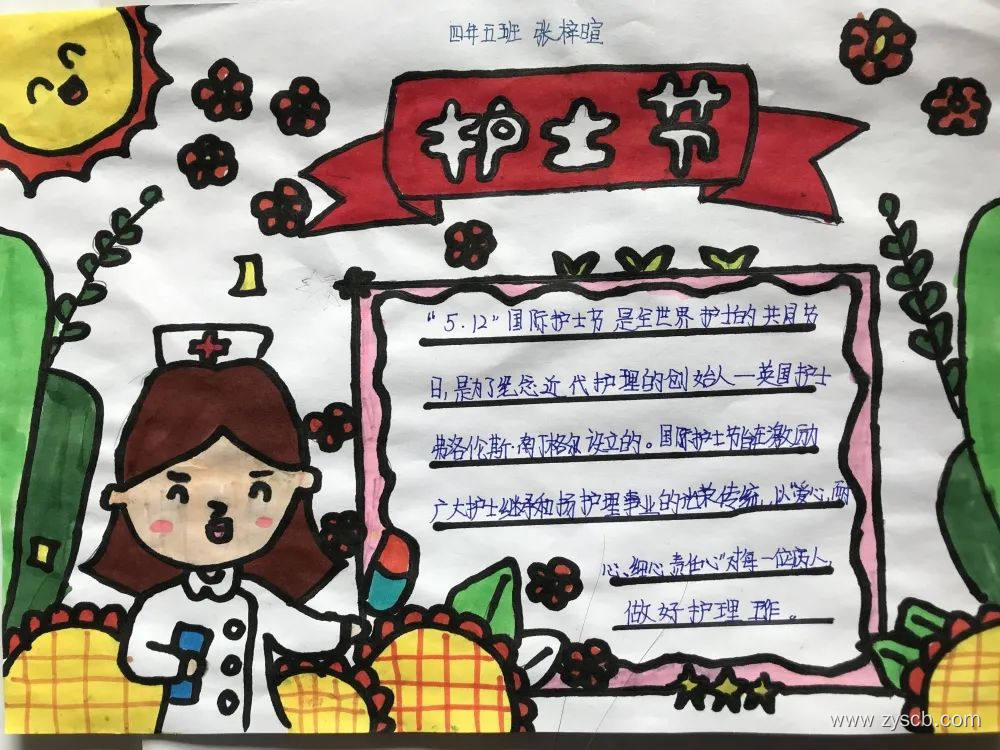 四年五班 张梓暄
护士节
“5.12”国际护士节是全世界护士的共同节
日,是为了纪念近代护理的创始人—英国护士
弗洛伦斯·南丁格尔设立的。国际护士节旨在激励
广大护士继承和扬护理事业的光荣传统,以“爱心、耐
心、细心、责任心”对每一位病人,
做好护理工作。
www.zyscb.com